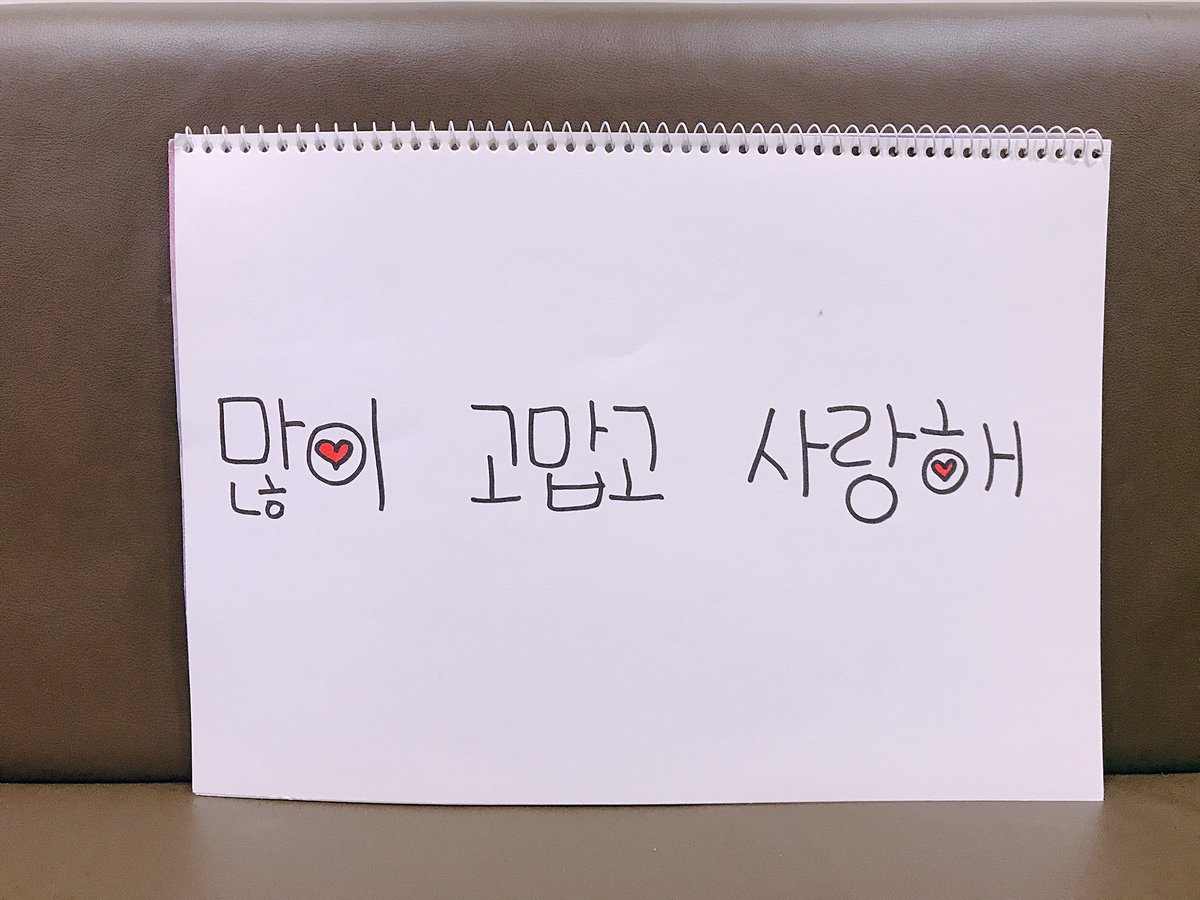 많이 고맙고 사랑해